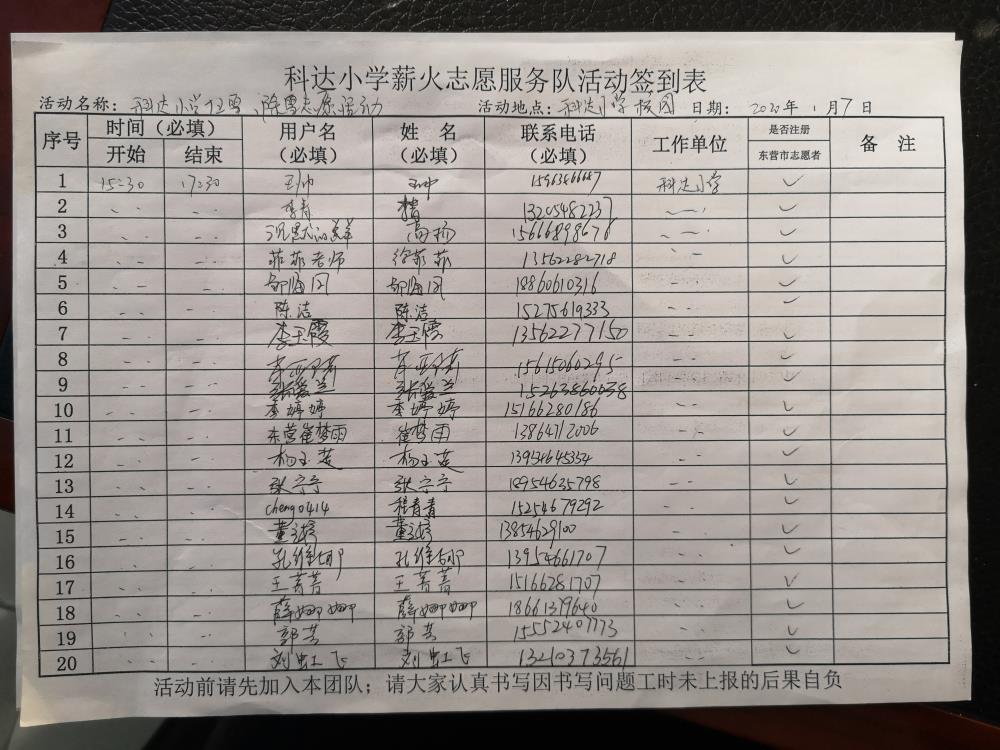 科达小学薪火志愿服务队活动签到表
活动名称： 科达小学 除雪志愿活动 活动地点：科达小学校园 日期： 2020年 1月7日
序号 时间（必填） 用户名（必填） 姓 名（必填） 联系电话（必填） 工作单位 是否注册东营市志愿者 备 注
开始 结束
1 15:30 17:30 科达小学 ✓
2 李青 13205482237 ✓
3 高杨 15666898676 ✓
4 菲菲老师 徐菲菲 13562282718 ✓
5 邹海凤 邹海凤 18860610316 ✓
6 陈洁 陈洁 15275619333 ✓
7 李玉霞 李玉霞 13562277150 ✓
8 15615060295 ✓
9 张爱兰 张爱兰 15263860638 ✓
10 李婷婷 李婷婷 15166280186 ✓
11 东营崔梦雨 崔梦雨 13864712006 ✓
12 杨玉英 杨玉英 13954645354 ✓
13 张宁宁 张宁宁 18954635798 ✓
14 cheng0414 程青青 15254679292 ✓
15 13854629100 ✓
16 孔维娜 孔维娜 13954661707 ✓
17 王菁菁 王菁菁 15166281707 ✓
18 薛娜娜 薛娜娜 18661379640 ✓
19 郭芸 郭芸 15552407773 ✓
20 刘虹飞 刘虹飞 13210373561 ✓
活动前请先加入本团队；请大家认真书写因书写问题工时未上报的后果自负